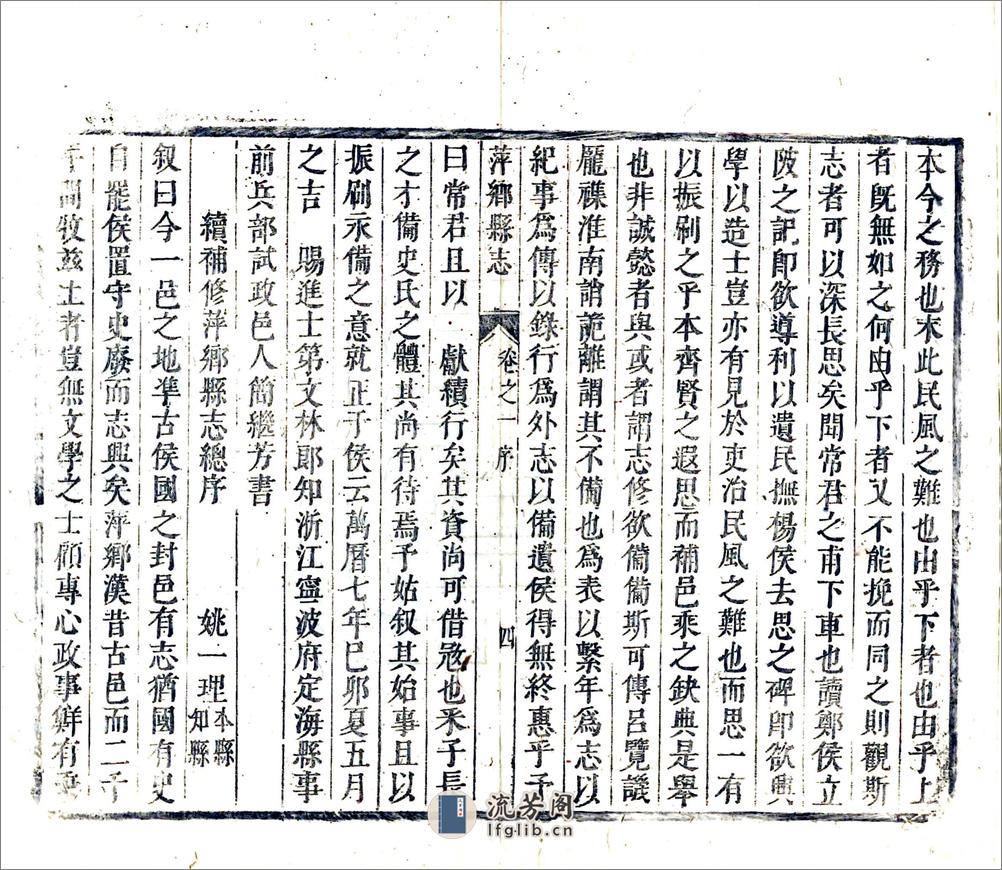 本今之務也末此民風之難也由乎下者也由乎上
者既無如之何由乎下者又不能挽而同之則觀斯
志者可以深長思矣聞常君之甫下車也讀鄭侯立
陂之記即欲導利以遺民撫楊侯去思之碑即欲興
學以造士豈亦有見於吏治民風之難也而思一有
以振刷之乎本齊賢之遐思而補邑乘之缺典是舉
也非誠懿者與或者謂志修欲備備斯可傳呂覽譏
龐襍淮南誚詭離謂其不備也為表以繫年為志以
紀事為傳以錄行為外志以備遺侯得無終惠乎予
萍鄉縣志 卷之一 序 四
曰常君且以 獻績行矣其資尚可借宼也釆子長
之才備史氏之體其尚有待焉予姑叙其始事且以
振刷永備之意就正于侯云萬曆七年巳夘夏五月
之吉 賜進士第文林郎知浙江寧波府定海縣事
前兵部試政邑人簡繼芳書
續補修萍鄉縣志總序 姚一理 本縣知縣
叙曰今一邑之地準古侯國之封邑有志猶國有史
自罷侯置守史廢而志興矣萍鄉漢昔古邑而二千
年間牧茲土者豈無文學之士顧專心政事鮮有
流芳阁
lfglib.cn